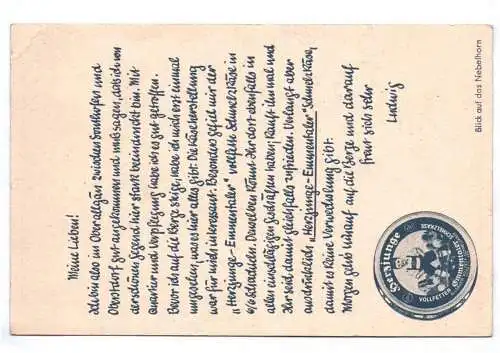 Meine Lieben!
Ich bin also im Oberallgäu zwischen Sonthofen und
Oberstdorf gut angekommen und muß sagen, daß ich von
der schönen Gegend hier stark beeindruckt bin. Mit
Quartier und Verpflegung habe ich es gut getroffen.
Bevor ich auf die Berge steige, habe ich mich erst einmal
umgesehen, was es hier alles gibt. Die Käseherstellung
war für mich interessant. Besonders gefiel mir der
„Herzjunge-Emmentaler" vollfette Schmelzkäse in
6/6 Schachteln. Denselben könnt Ihr dort ebenfalls in
allen einschlägigen Geschäften haben; kauft ihn mal und
Ihr seid damit gleichfalls zufrieden. Verlangt aber
ausdrücklich „Herzjunge-Emmentaler" Schmelzkäse,
damit es keine Verwechslung gibt.
Morgen geh's hinauf auf die Berge und darauf
freut sich sehr
Ludwig
Herzjunge
VOLLFETTER
Blick auf das Nebelhorn